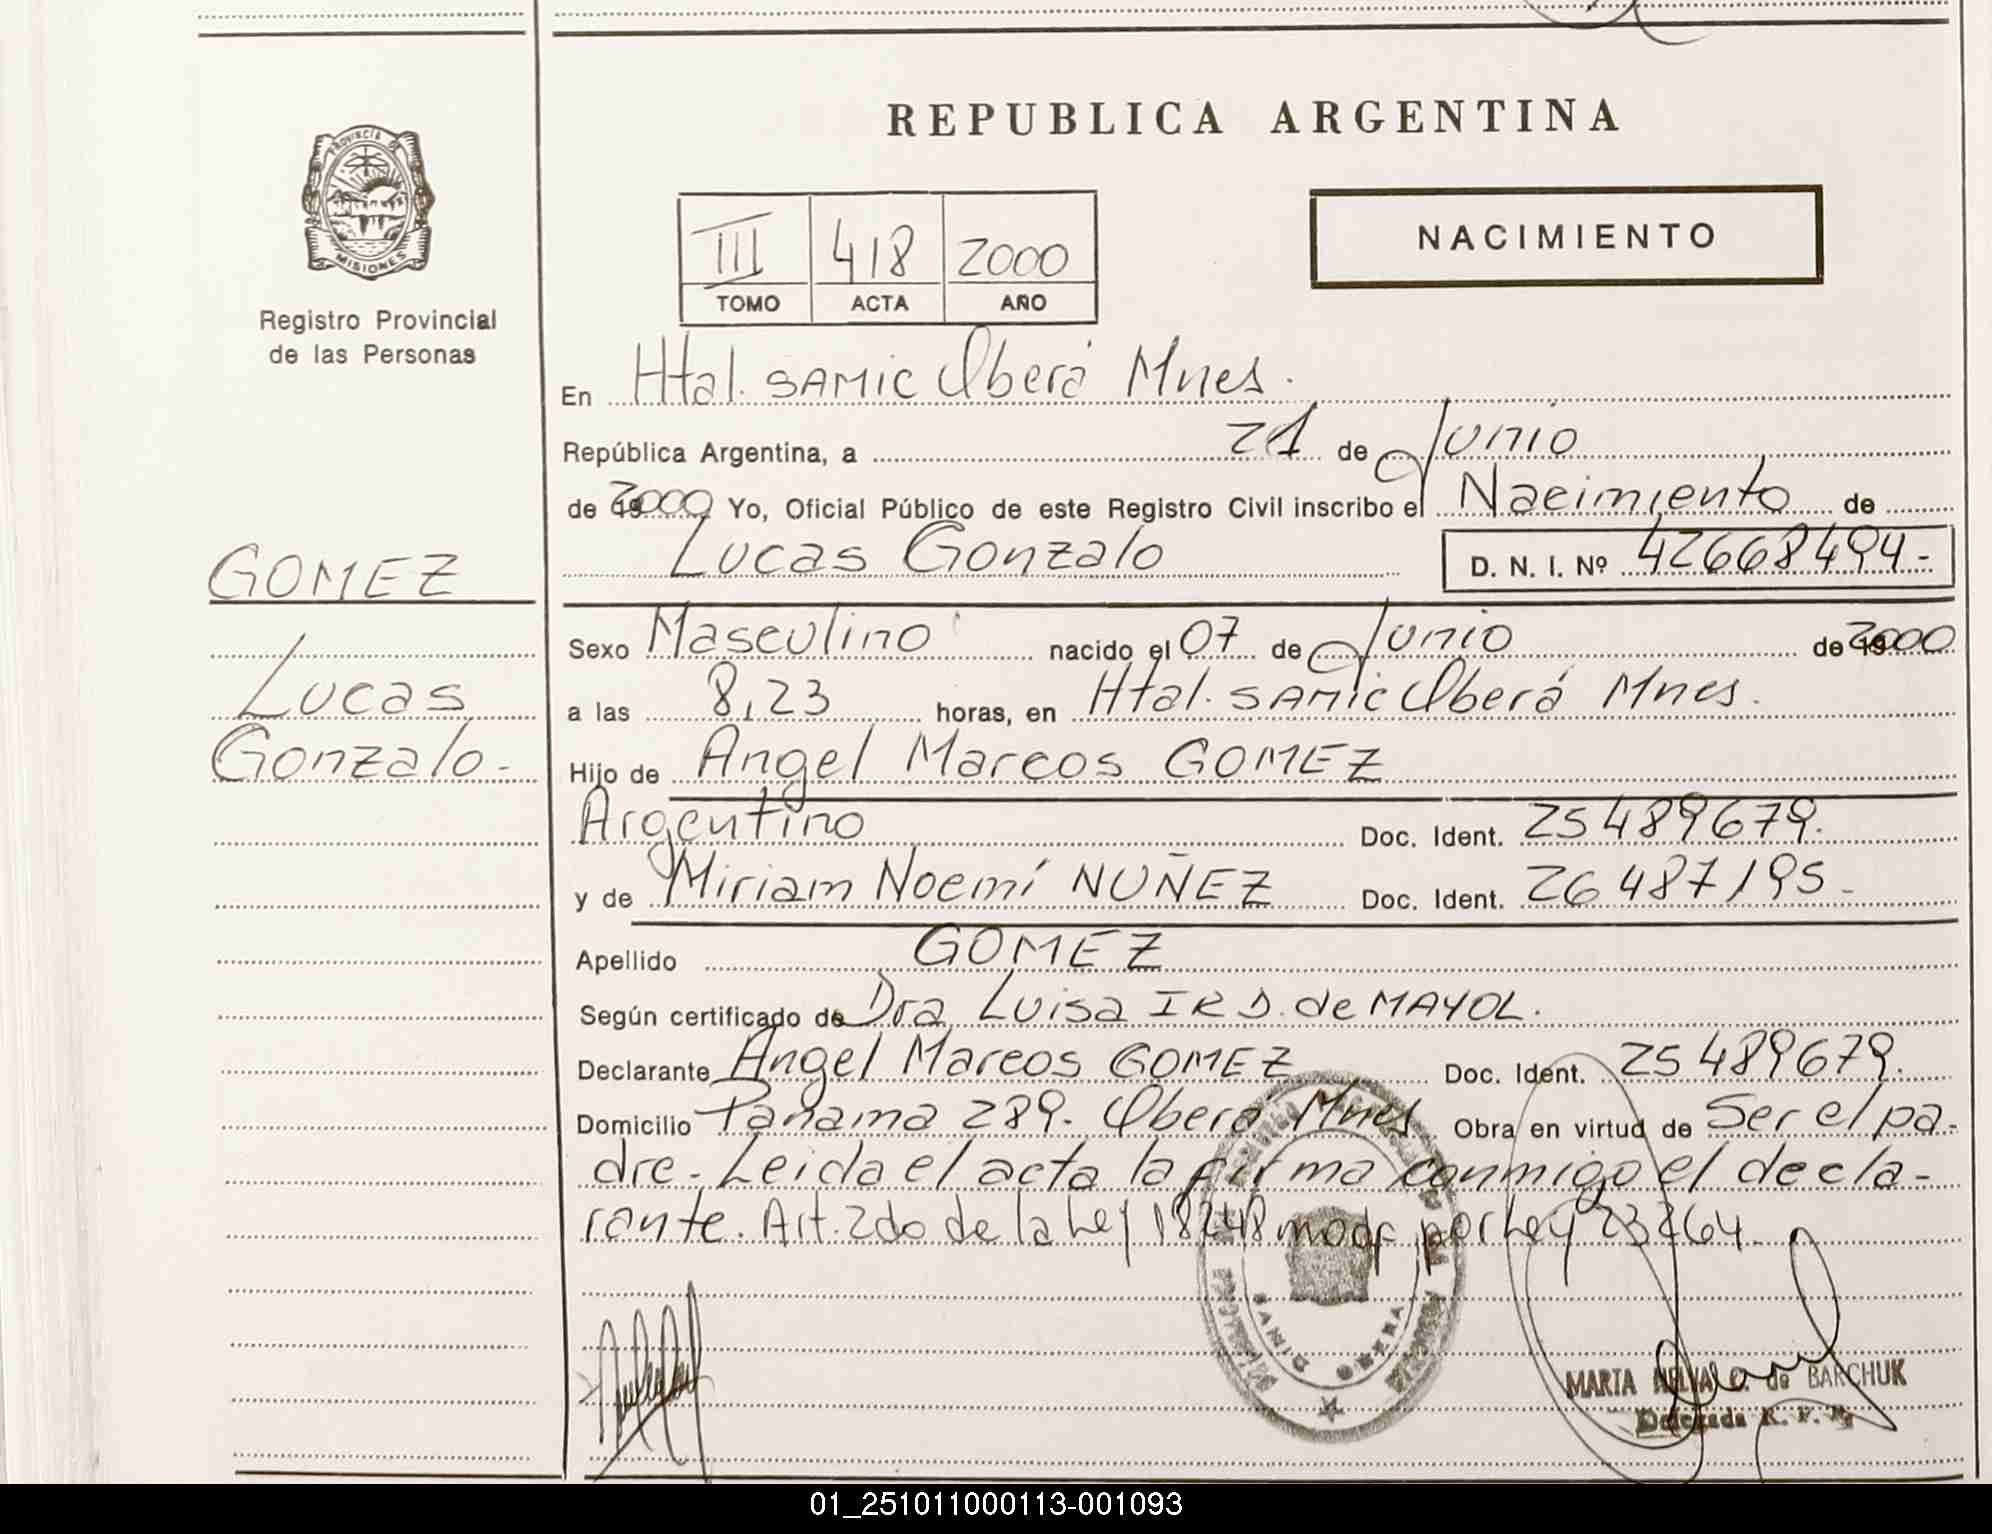 REPUBLICA ARGENTINA
PROVINCIA DE
MISIONES
Registro Provincial
de las Personas
III 418 2000
TOMO ACTA AÑO
NACIMIENTO
En Htal. SAMIC Oberá Mnes.
República Argentina, a 21 de Junio
de 2000 Yo, Oficial Público de este Registro Civil inscribo el Nacimiento de
Lucas Gonzalo D. N. I. Nº 42668494-
GOMEZ
Lucas
Gonzalo-
Sexo Masculino nacido el 07 de Junio de 2000
a las 8,23 horas, en Htal. SAMIC Oberá Mnes.
Hijo de Angel Marcos GOMEZ
Argentino Doc. Ident. 25489679.
y de Miriam Noemí NUÑEZ Doc. Ident. 26487195-
Apellido GOMEZ
Según certificado de Dra Luisa I R D. de MAYOL.
Declarante Angel Marcos GOMEZ Doc. Ident. 25489679.
Domicilio Panama 289- Oberá Mnes Obra en virtud de Ser el pa-
dre- Leida el acta la firma conmigo el decla-
rante. Art. 2do de la Ley 18248 modf por Ley 23264
SAMIC OBERA
MARTA NELVA C. de BARCHUK
Delegada R. P. P.
01_251011000113-001093